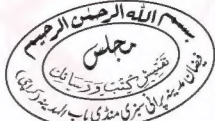 بسم الله الرحمن الرحيم
مجلس
تفتیش کتب و رسائل
فیضان مدینہ پرانی سبزی منڈی باب المدینہ (کراچی)